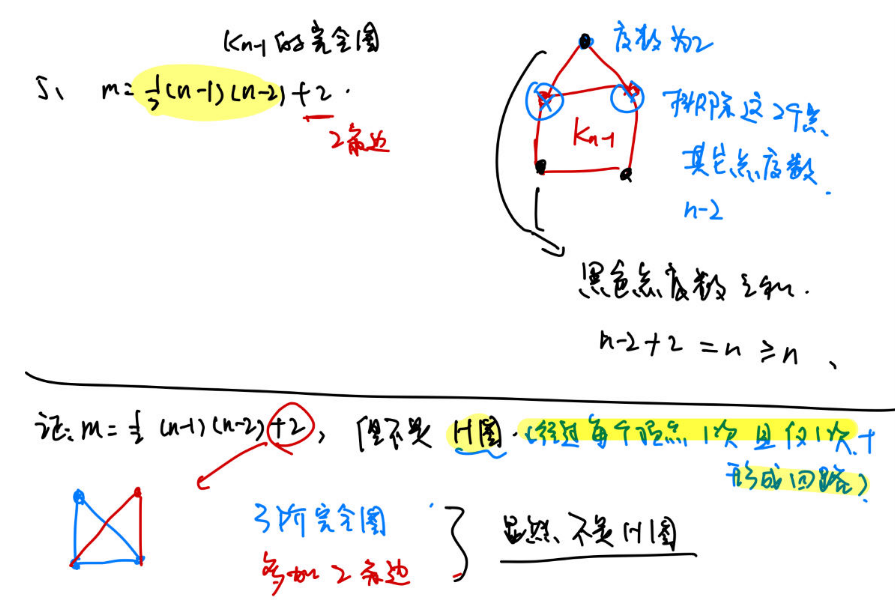 Kn-1 的完全图
5、 m= ½(n-1)(n-2)+2.
2条边
度数为2
Kn-1
排除这2个点、
其它点度数
n-2
黑色点度数之和.
n-2+2 = n ≥ n 、
证: m= ½ (n-1)(n-2)+2, 但不是 H图. (经过每个顶点 1次 且 仅1次 +
形成回路)
3阶完全图
多加2条边
显然、不是H图